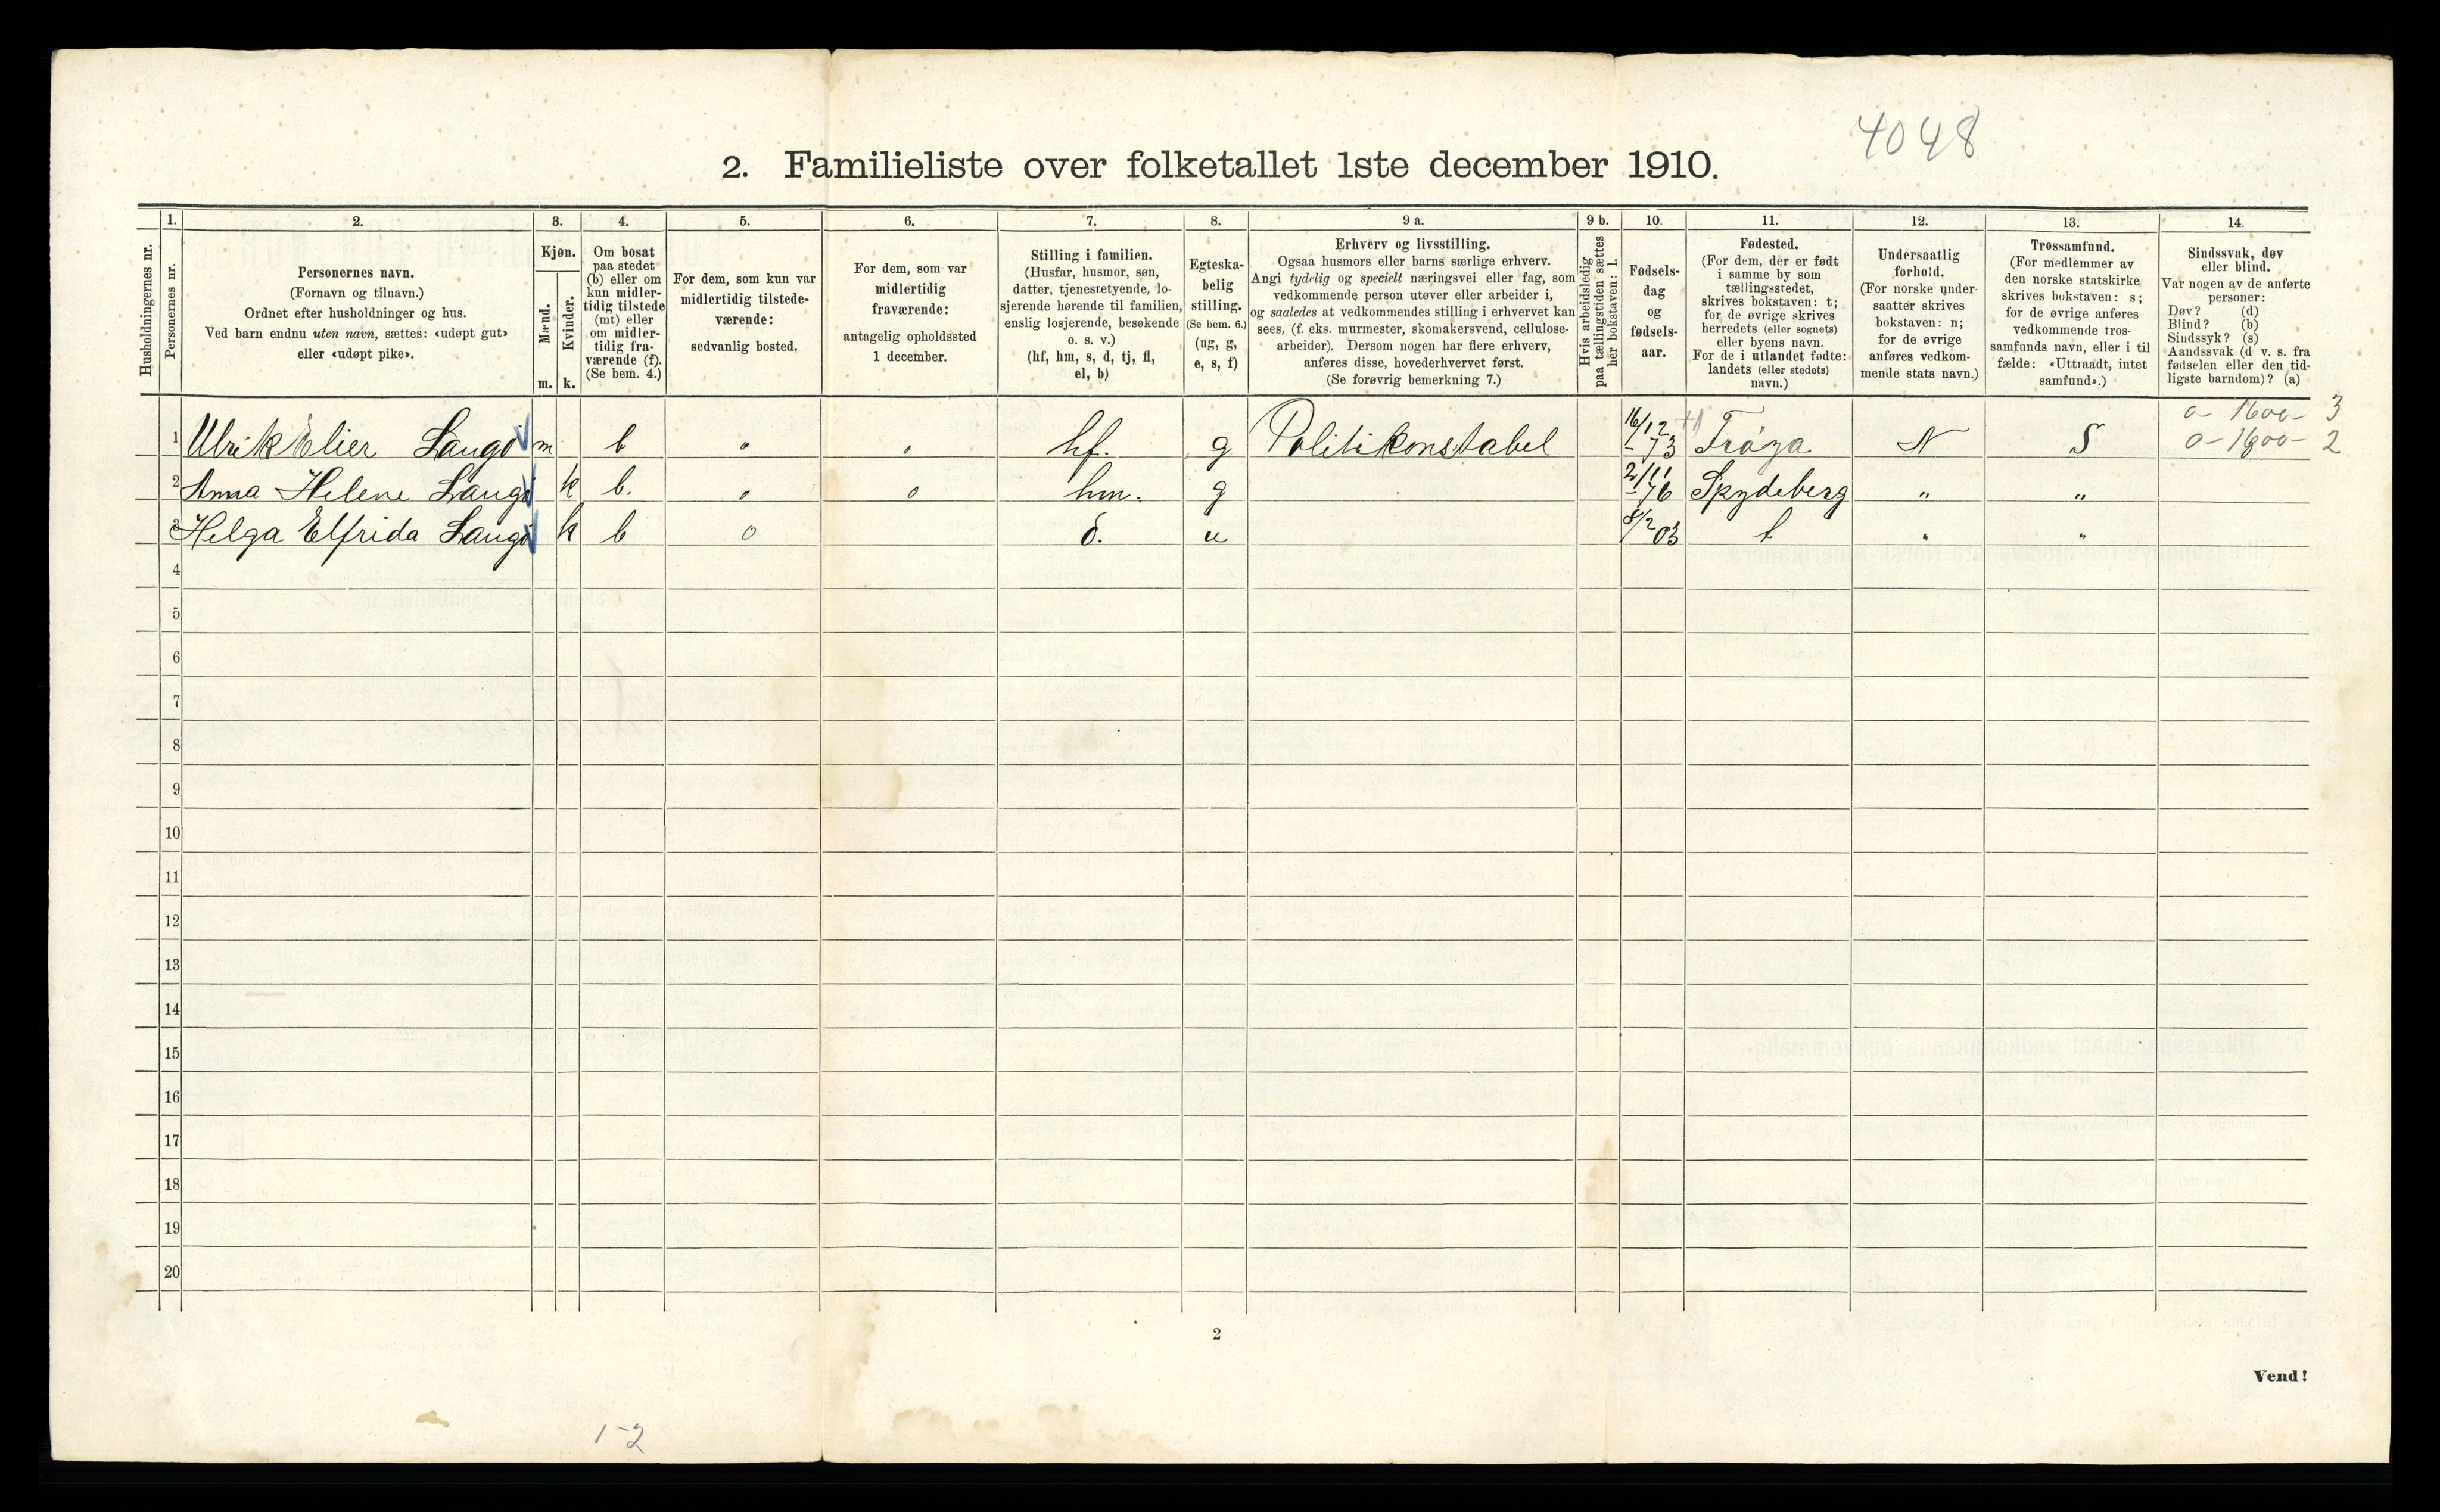 4048
2. Familieliste over folketallet 1ste december 1910.
Husholdningernes nr.
1.
Personernes nr.
2.
Personernes navn.
(Fornavn og tilnavn.)
Ordnet efter husholdninger og hus.
Ved barn endnu uten navn, sættes: «udøpt gut»
eller «udøpt pike».
3.
Kjøn.
Mænd.
m.
Kvinder.
k.
4.
Om bosat
paa stedet
(b) eller om
kun midler-
tidig tilstede
(mt) eller
om midler-
tidig fra-
værende (f).
(Se bem. 4.)
5.
For dem, som kun var
midlertidig tilstede-
værende:
sedvanlig bosted.
6.
For dem, som var
midlertidig
fraværende:
antagelig opholdssted
1 december.
7.
Stilling i familien.
(Husfar, husmor, søn,
datter, tjenestetyende, lo-
sjerende hørende til familien,
enslig losjerende, besøkende
o. s. v.)
(hf, hm, s, d, tj, fl,
el, b)
8.
Egteska-
belig
stilling.
(Se bem. 6.)
(ug, g,
e, s, f)
9 a.
Erhverv og livsstilling.
Ogsaa husmors eller barns særlige erhverv.
Angi tydelig og specielt næringsvei eller fag, som
vedkommende person utøver eller arbeider i,
og saaledes at vedkommendes stilling i erhvervet kan
sees, (f. eks. murmester, skomakersvend, cellulose-
arbeider). Dersom nogen har flere erhverv,
anføres disse, hovederhvervet først.
(Se forøvrig bemerkning 7.)
9 b.
Hvis arbeidsledig
paa tællingstiden sættes
her bokstaven: l.
10.
Fødsels-
dag
og
fødsels-
aar.
11.
Fødested.
(For dem, der er født
i samme by som
tællingsstedet,
skrives bokstaven: t;
for de øvrige skrives
herredets (eller sognets)
eller byens navn.
For de i utlandet fødte:
landets (eller stedets)
navn.)
12.
Undersaatlig
forhold.
(For norske under-
saatter skrives
bokstaven: n;
for de øvrige
anføres vedkom-
mende stats navn.)
13.
Trossamfund.
(For medlemmer av
den norske statskirke
skrives bokstaven: s;
for de øvrige anføres
vedkommende tros-
samfunds navn, eller i til
fælde: «Uttraadt, intet
samfund».)
14.
Sindssvak, døv
eller blind.
Var nogen av de anførte
personer:
Døv? (d)
Blind? (b)
Sindssyk? (s)
Aandssvak (d v. s. fra
fødselen eller den tid-
ligste barndom)? (a)
0- 1600- 3
1 Ulrik Elier Langö m b " " hf. g Politikonstabel 16/12 73 Trøga N S 0- 1600- 2
2 Anna Helene Langö k b. " 0 hm. g 2/11 76 Spydeberg " "
3 Helga Elfrida Langö k b 0 d. u 8/2 03 t " "
4
5
6
7
8
9
10
11
12
13
14
15
16
17
18
19
20
2
Vend!
1-2